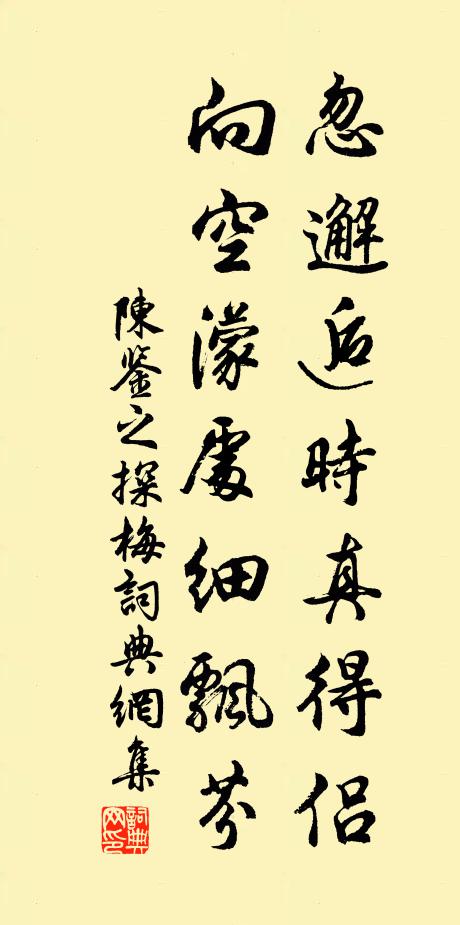 忽邂逅時真得侶
向空濛處細飄芬
陳鑒之探梅詞典網集
詞典网印